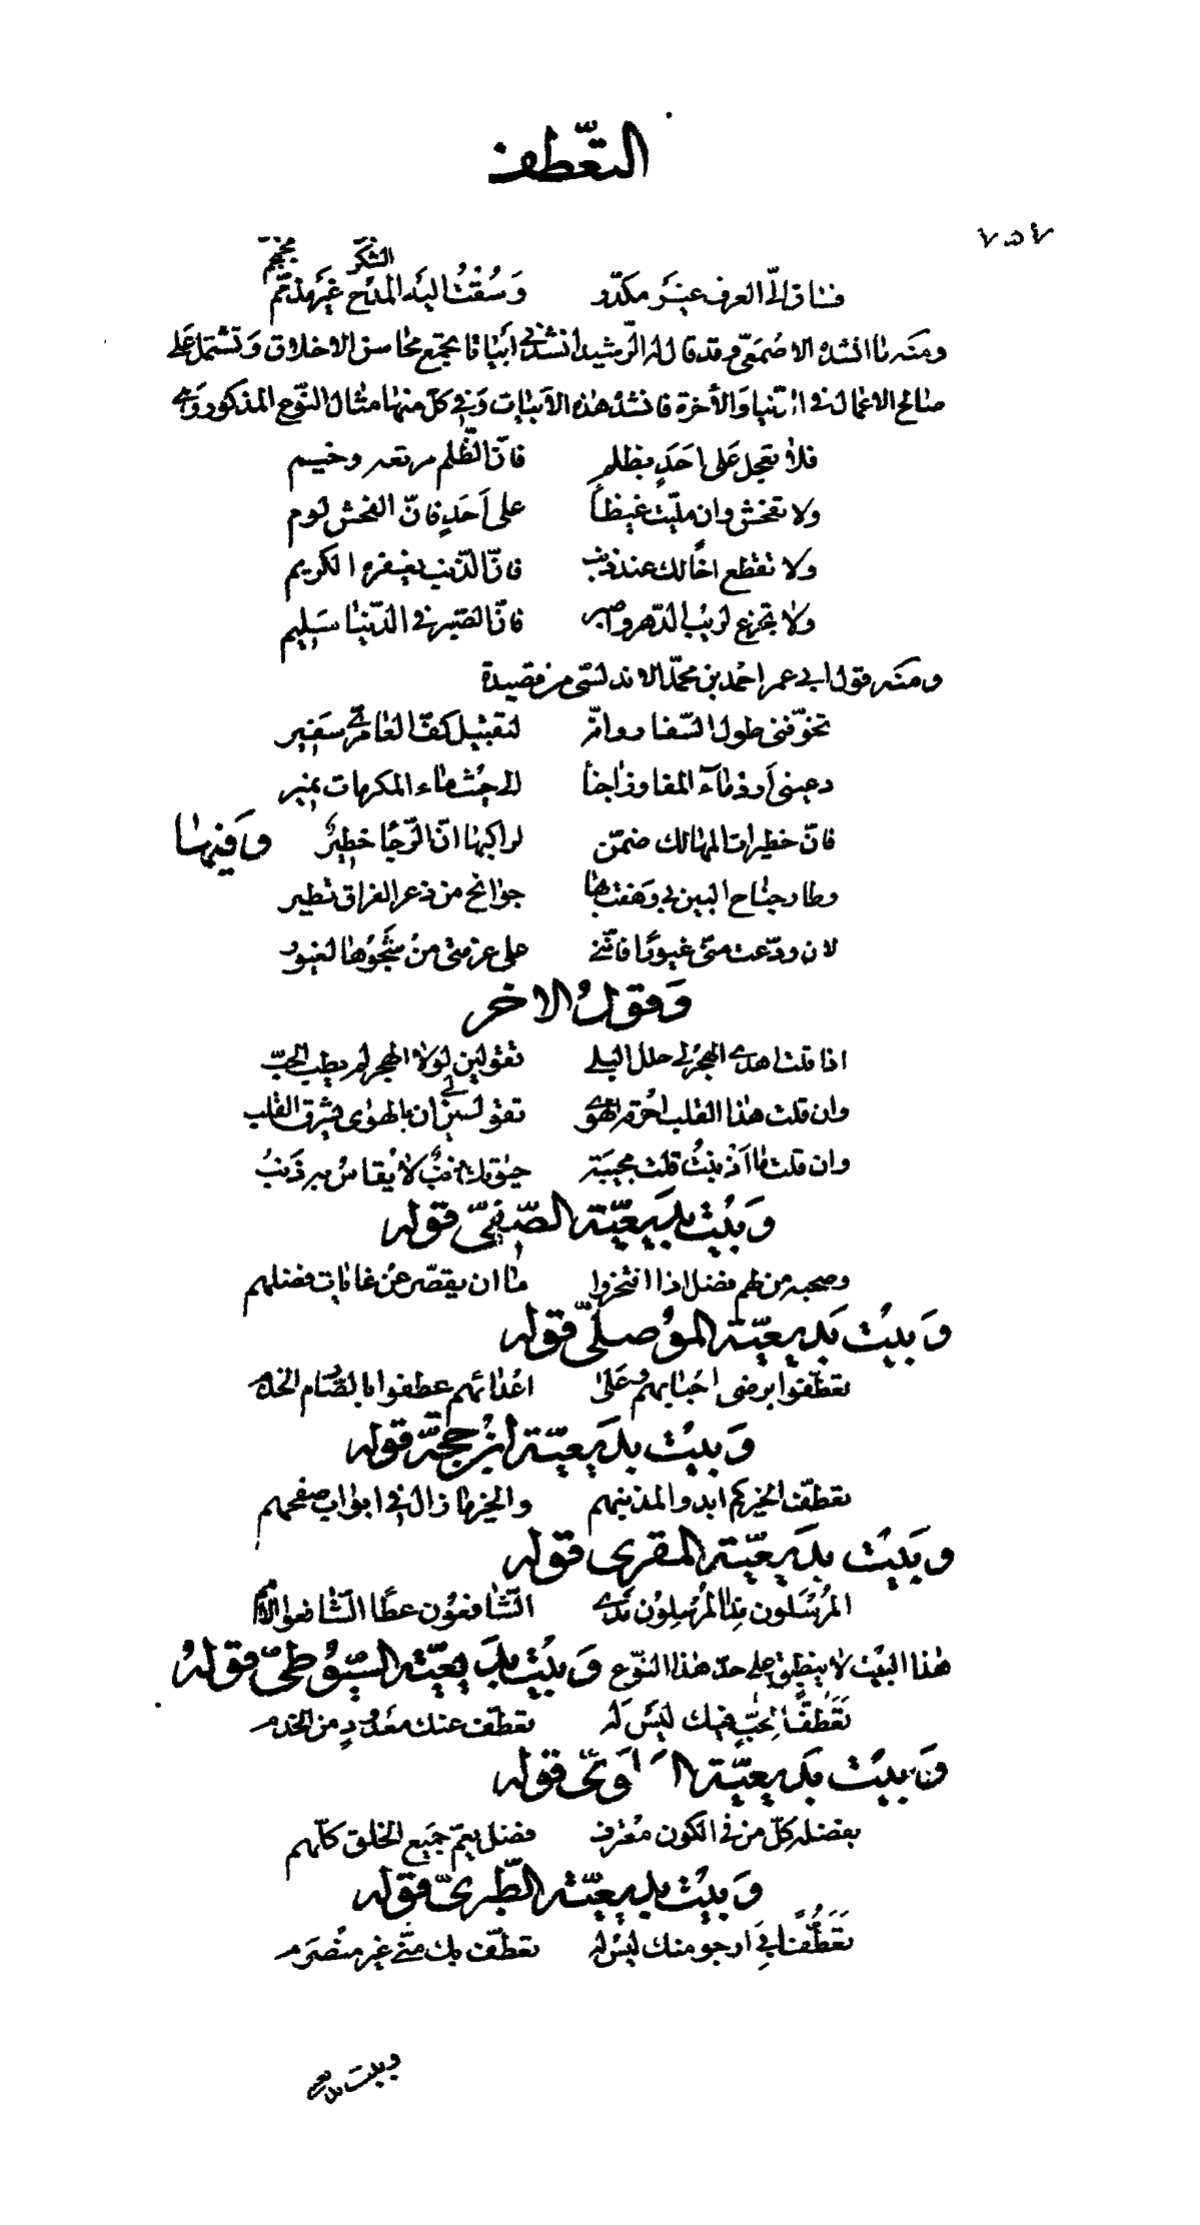 التعّطف
٧٥٧
الشكر مجمجم
فساق الىّ العرف غير مكدّر وَسُقتُ اليه المدح غير مذمّم
ومنه ما انشده الاصمعىّ وقد قال له الرّشيد انشدنى أبياتا تجمع محاسن الاخلاق وتشتمل على
صالح الاعمال فى الدّنيا والأخرة فانشد هذه الأبيات وفى كلّ منها مثال النّوع المذكور وهى
فلا تعجل على احَدٍ بظلم فانّ الظّلم مرتعه وخيم
ولا تفحش وان ملّيت غيظاً على أحَدٍ فانّ الفحش لوم
ولا تقطع اخًا لك عند ذنب فانّ الذّنب يغفره الكريم
ولا تجزع لريب الدّهر واصبر فانّ الصّبر فى الدّنيا سَليم
ومنه قول ابى عمر احمد بن محمّد الاندلسّى من قصيدة
تخوّفنى طول السّفار وانّه لتقبيل كفّ العامرىّ سَفير
دعينى أرد مآء المفاوز اجنا الى حيث ماء المكرمات نمير
فانّ خطيرات المهالك ضمّن لراكبها انّ الجزاء خطيرٌ وَفيها
وطار جناح البين بى وَهفت بها جوانح من ذعر الفراق تطير
لان ودّعت منّى غيورًا فانّنى على عزمتى من شجوها لغيور
وَقولُ الاخر
اذا قلت اهدى الهجر لى حلل البلى تقولين لولا الهجر لم يطب الحبّ
وان قلت هذا القلب احرقه الهوى تقولى بنيران الهوى شرف القلب
وان قلت ما اذنبتُ قلت مجيبة حيٰوتك ذنبٌ لا يُقاسُ به ذَنبُ
وَبيت بديعيّة الصّفىّ قوله
وصحبه من لهم فضل اذا افتخروا ما ان يقصّر عن غايات فضلهم
وَبيت بديعيّة الموصلىّ قوله
تعطّفوا برضى احبابهم وعلى اعدائهم عطفوا بالصّارم الخذم
وَبيت بديعيّة ابن حجّة قوله
تعطّف الخير كم ابدوا لمذنبهم والخير ما زال فى ابواب صفحهم
وبَيت بديعيّة المقرى قوله
المرُسَلون بذا المرُسِلون ندى الشّافعون عطًا الشّافعوا الامم
هذا البيت لا ينطبق على حدّ هذا النوّع وَبيت بديعيّة السّيوطىّ قوله
تَعَطّفًا لحبٍّ فيك ليس له تعطّف عنك معدودٍ من الخدم
وَبيت بديعيّة العلوىّ قوله
بفضله كلّ من فى الكون معُترف فضل يعمّ جميع الخلق كلّهم
وَبيت بديعيّة الطّبرىّ قوله
تَعَطُّفًا بى ارجو منك ليس له تعطّف بك منّى غير منصرم
وبيت بديعية